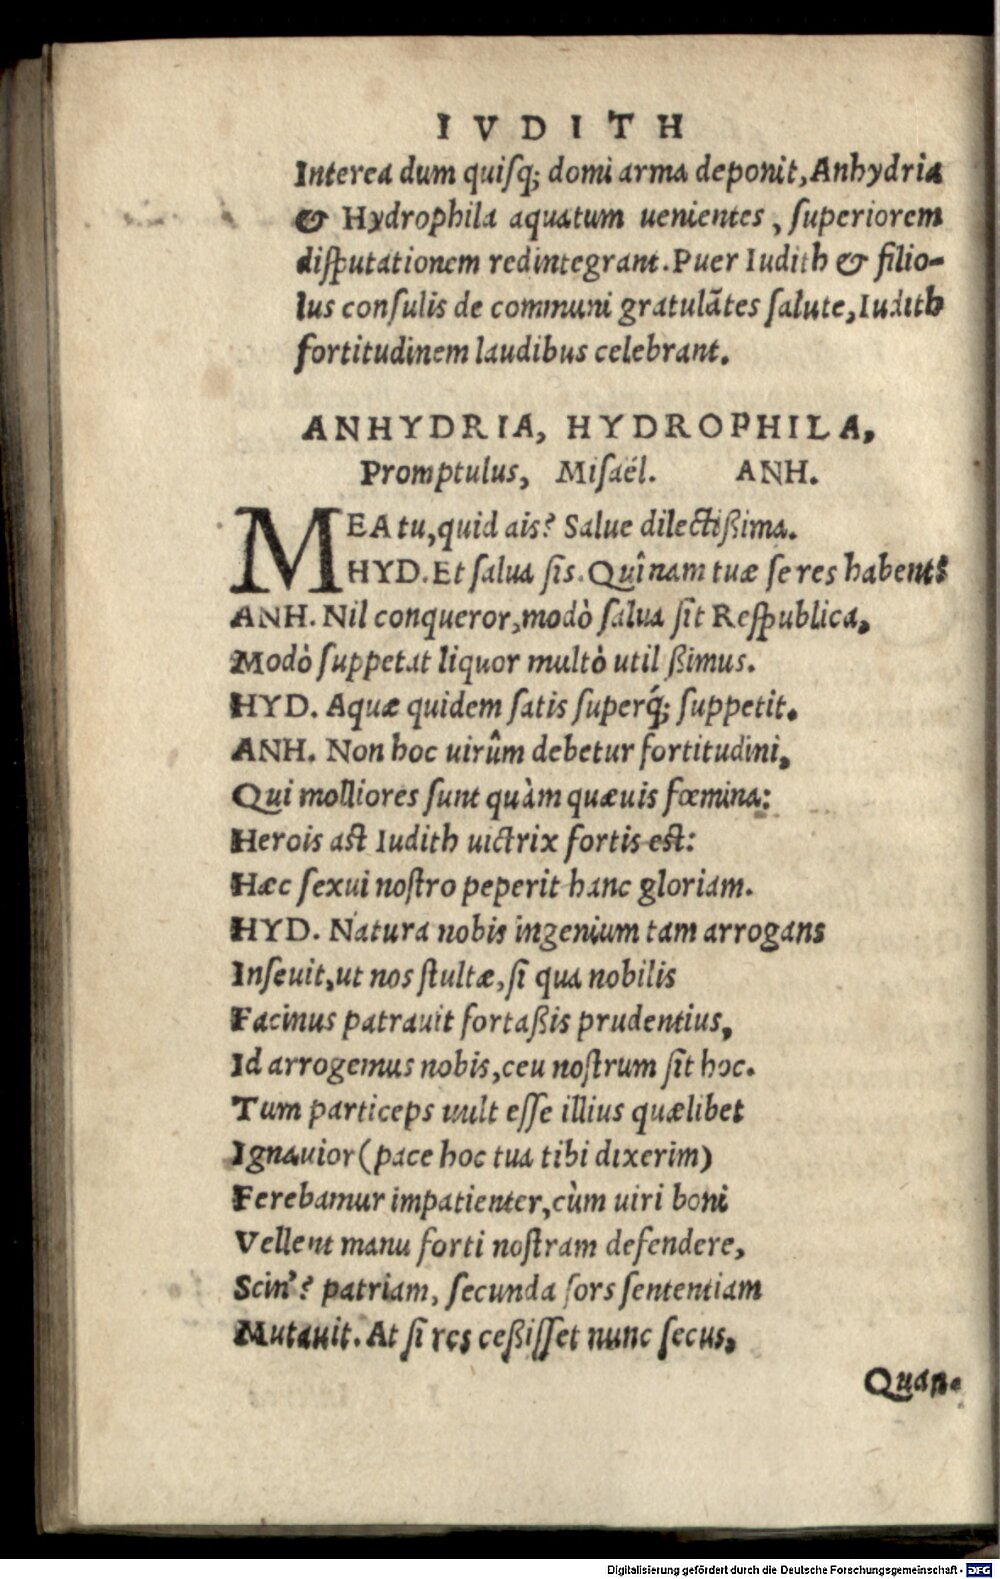 IVDITH
Interea dum quiſq; domi arma deponit, Anhydria
& Hydrophila aquatum uenientes, ſuperiorem
diſputationem redintegrant. Puer Iudith & filio-
lus conſulis de communi gratulãtes ſalute, Iudith
fortitudinem laudibus celebrant.
ANHYDRIA, HYDROPHILA,
Promptulus, Miſaël. ANH.
MEA tu, quid ais? Salue dilectißima.
HYD. Et ſalua ſis. Quî nam tuæ ſe res habent?
ANH. Nil conqueror, modò ſalua ſit Reſpublica,
Modò ſuppetat liquor multò util ßimus.
HYD. Aquæ quidem ſatis ſuperq́; ſuppetit.
ANH. Non hoc uirûm debetur fortitudini,
Qui molliores ſunt quàm quæuis fœmina:
Herois aſt Iudith uictrix fortis eſt:
Hæc ſexui noſtro peperit hanc gloriam.
HYD. Natura nobis ingenium tam arrogans
Inſeuit, ut nos ſtultæ, ſi qua nobilis
Facinus patrauit fortaßis prudentius,
Id arrogemus nobis, ceu noſtrum ſit hoc.
Tum particeps uult eſſe illius quælibet
Ignauior (pace hoc tua tibi dixerim)
Ferebamur impatienter, cùm uiri boni
Vellent manu forti noſtram defendere,
Scin'? patriam, ſecunda ſors ſententiam
Mutauit. At ſi res ceßiſſet nunc ſecus,
Quan-
Digitalisierung gefördert durch die Deutsche Forschungsgemeinschaft - DFG